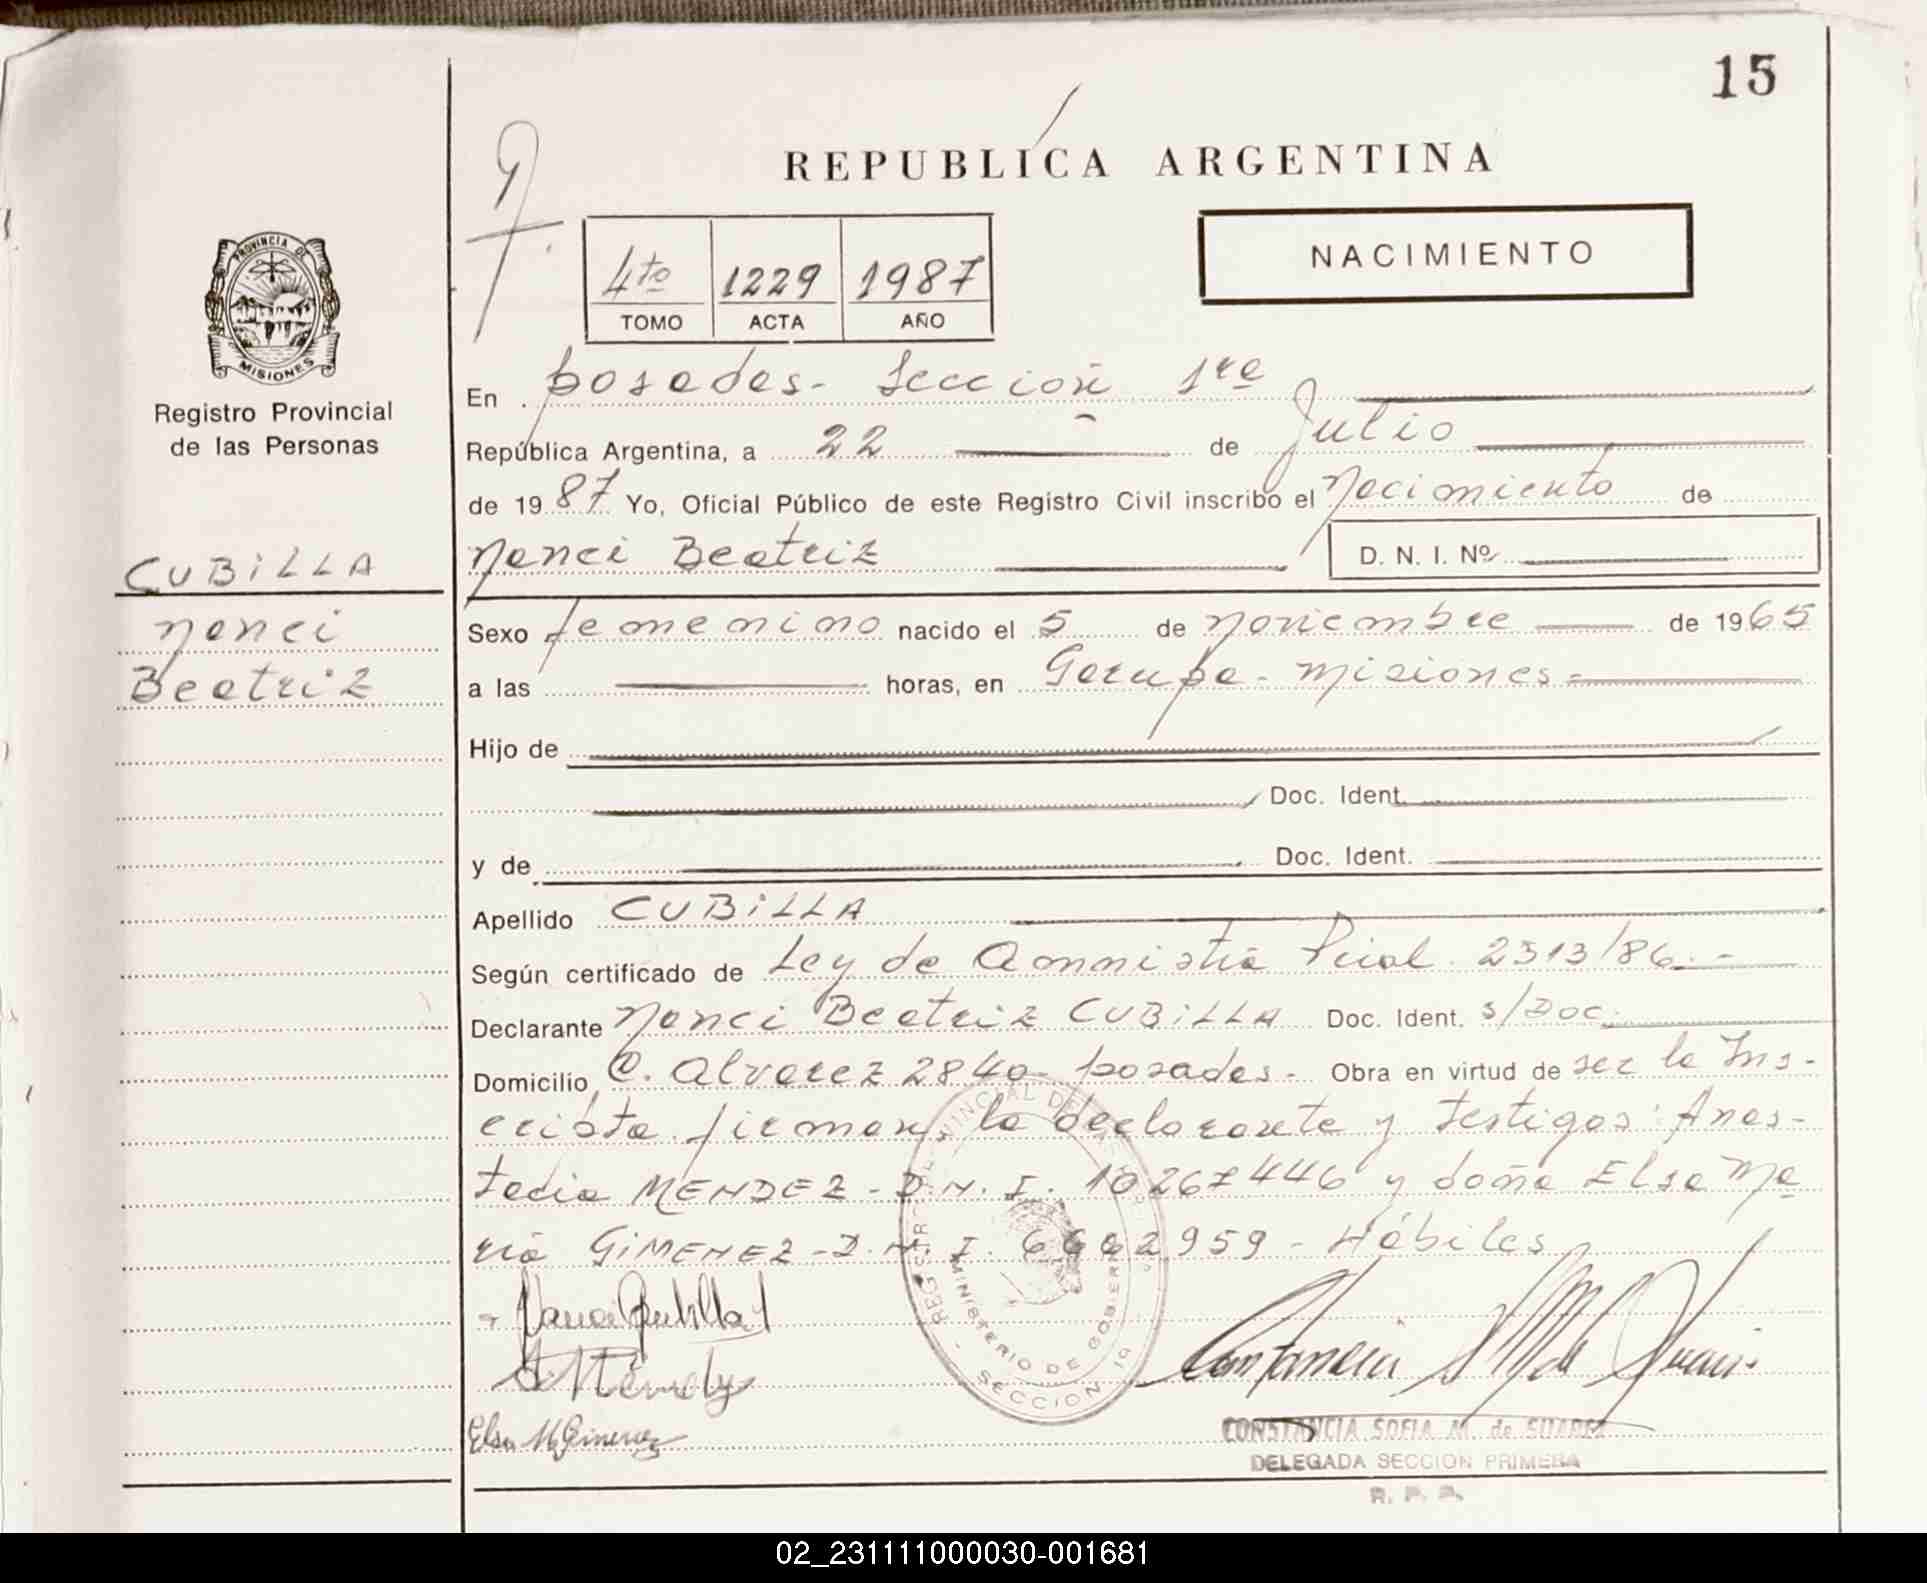 15
REPUBLICA ARGENTINA
NACIMIENTO
4to 1229 1987
TOMO ACTA AÑO
PROVINCIA DE
MISIONES
Registro Provincial
de las Personas
CUBILLA
Nanci
Beatriz
En Posadas - Sección 1ra
República Argentina, a 22 de Julio
de 1987 Yo, Oficial Público de este Registro Civil inscribo el Nacimiento de
Nanci Beatriz D. N. I. Nº
Sexo femenino nacido el 5 de Noviembre de 1965
a las horas, en Garupa - Misiones -
Hijo de
Doc. Ident.
y de Doc. Ident.
Apellido CUBILLA
Según certificado de Ley de Amnistia 2313/86.-
Declarante Nanci Beatriz CUBILLA Doc. Ident. S/Doc.
Domicilio C. Alvarez 2840 - Posadas - Obra en virtud de ser la Ins-
cripta firman, la declarante y testigos: Anas-
tacia MENDEZ - D.N.I. 10267446 y doña Elsa Ma
ria GIMENEZ - D.N.I. 6662959 - Hábiles
Nanci Cubilla
A Mendez
Elsa M Gimenez
REGISTRO PROVINCIAL DE LAS PERSONAS
MINISTERIO DE GOBIERNO
- SECCION 1a -
CONSTANCIA SOFIA M. de SUAREZ
DELEGADA SECCION PRIMERA
R. P. P.
02_231111000030-001681